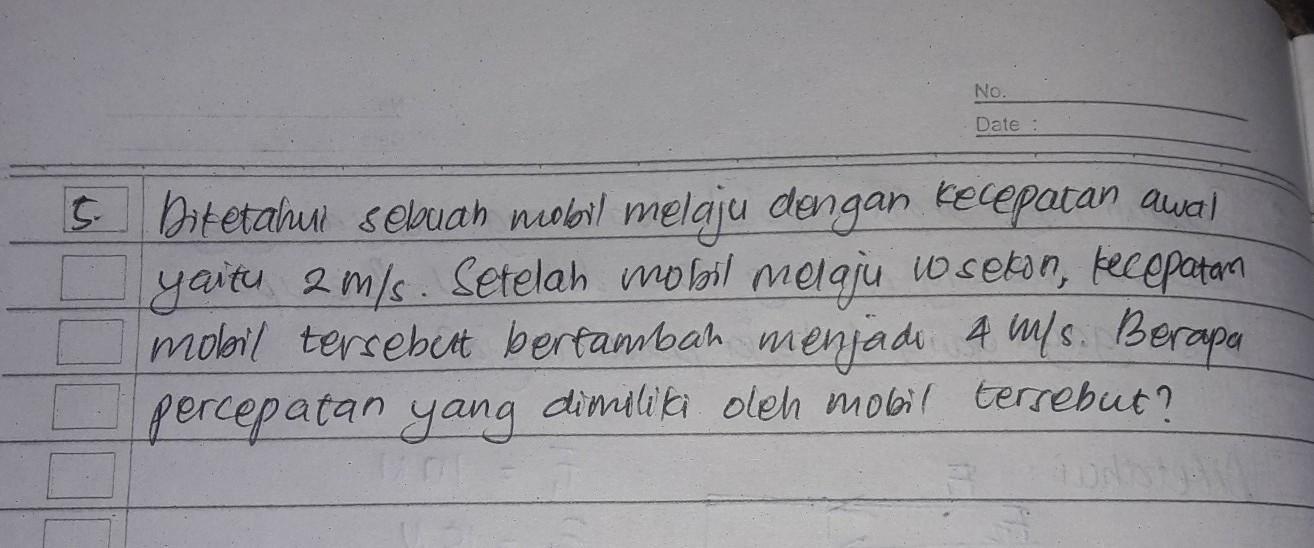 No.
Date :
5. Diketahui sebuah mobil melaju dengan kecepatan awal
yaitu 2 m/s. Setelah mobil melaju 10 sekon, kecepatan
mobil tersebut bertambah menjadi 4 m/s. Berapa
percepatan yang dimiliki oleh mobil tersebut?